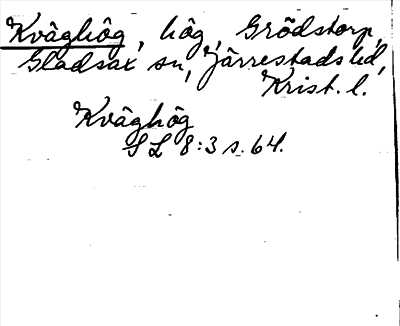 Kvâghôg, hôg, Grödstorp,
Gladsax sn, Järrestads hd,
Krist. l.
Kvâghôg
SL 8:3 s. 64.